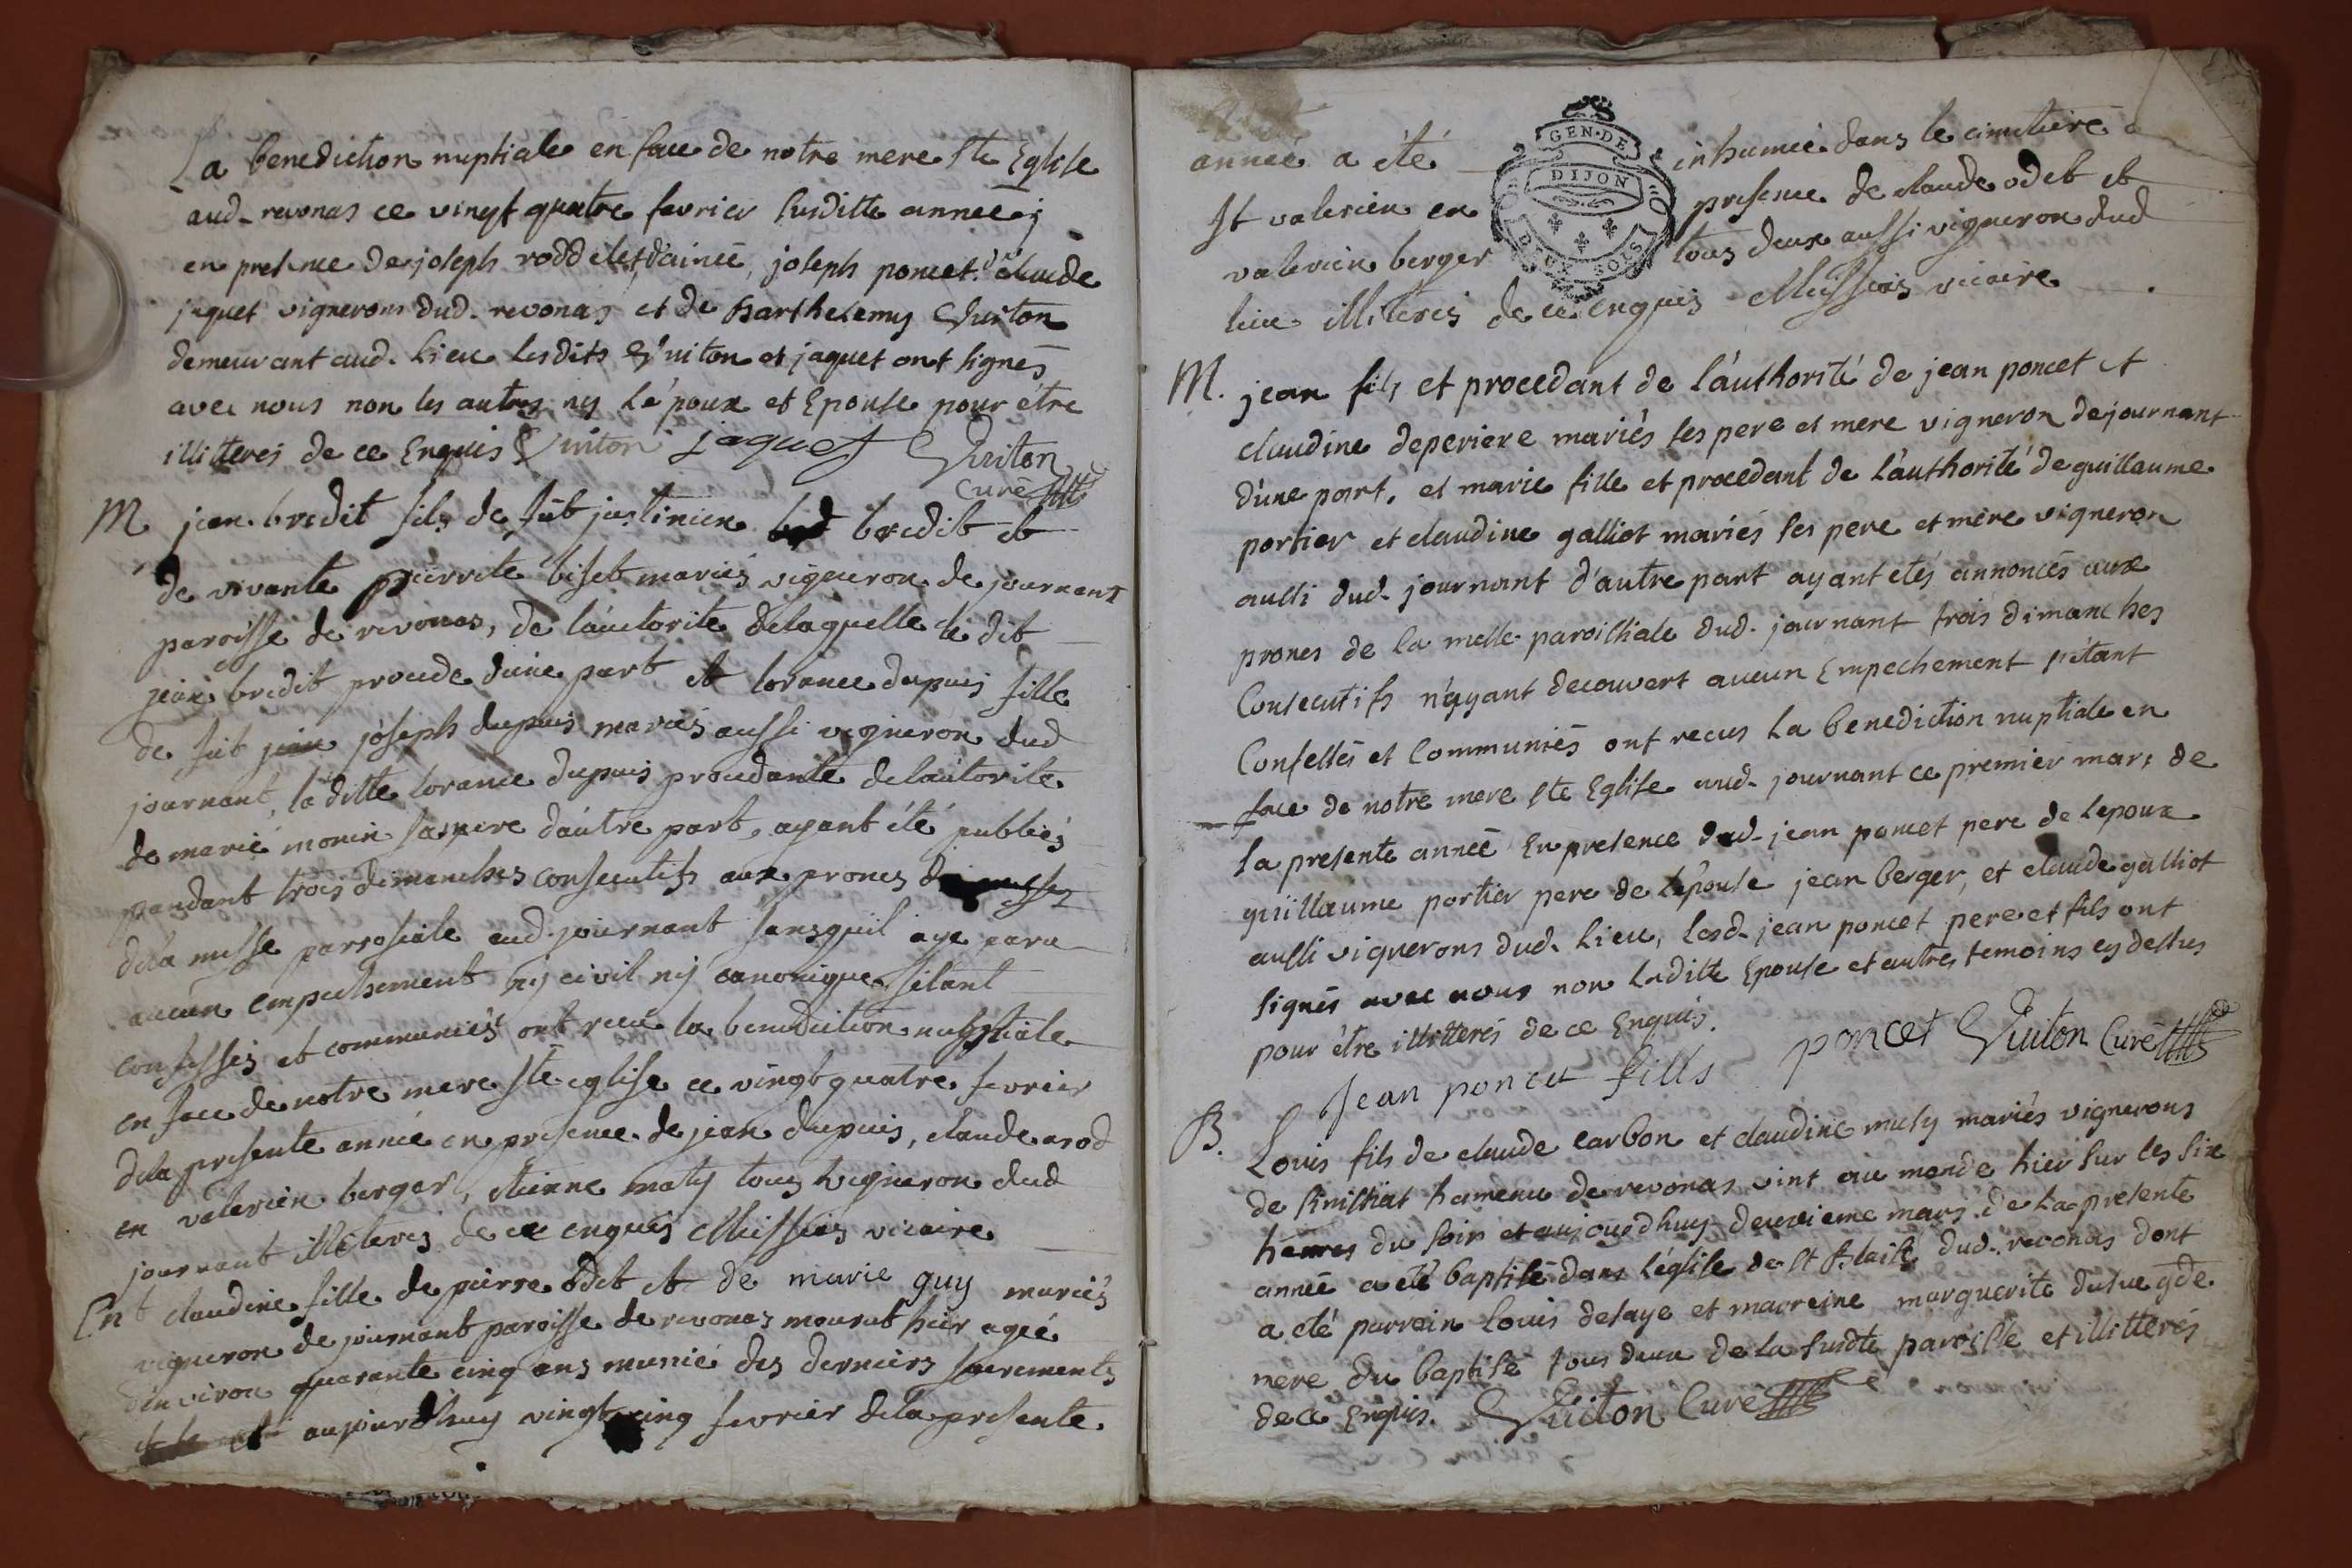 La benediction nuptiale en face de notre mere Ste Eglise
aud. revonas ce vingt quatre fevrier susditte anneé
en presence de joseph rodde dainé, joseph poncet, claude
jaquet vignerons dud. revonas et de Barthelemy Vuiton
demeurant aud. lieu lesdits Vuiton et jaquet ont signés
avec nous non les autres ny L'époux et Epouse pour étre
illitterés de ce Enquis Vuiton jaquet Vuiton
Curé
M jean bredit fils de fut justinien bredit et
de vivante pierrete biset mariés vigneron de journant
paroisse de revonas, de l'autorite delaquelle le dit
jean bredit procede d'une part et lorance dupuis fille
de fut joseph dupuis mariés aussi vigneron dud
journant, la ditte lorance dupuis procedante delautorite
de marie monin sa mere d'autre part, ayant été publiés
pendant trois dimanches consecutifs aux prones
dela messe parrosiale aud. journant sansquil aye paru
aucun empechement ny civil ny canonique s'étant
confessés et communiés ont recu la benediction nuptiale
en face de notre mere Ste eglise ce vingt quatre fevrier
dela presente année en presence de jean dupuis, claude arod
en valerien berger, etienne maty tous vigneron dud
journant illiterés de ce enquis Meissiat vicaire
Ent claudine fille de pierre odet et de marie guy mariés
vigneron de journant paroisse de revonas mourut hier ageé
d'environ quarante cinq ans munie des derniers sacrements
et aujourdhuy vingt cinq fevrier dela presente
anneé a été inhumeé dans le cimetiere a
St valerien en presence de claude odet et
valerien berger tous deux aussi vigneron dud
lieu illiterés de ce enquis Meissiat vicaire
GEN. DE
DIJON
DEUX SOLS
M. jean fils et procedant de l'authorité de jean poncet et
claudine deperiere mariés ses pere et mere vigneron de journant
d'une part, et marie fille et procedant de l'authorité de guillaume
portier et claudine galliot mariés ses pere et mere vigneron
aussi dud. journant d'autre part ayant etés annoncés aux
prones de la messe paroissiale dud. journant trois dimanches
Consecutifs n'ayant decouvert aucun Empechement s'étant
Confessés et Communiés ont recus la benediction nuptiale en
face de notre mere Ste Eglise aud. journant ce premier mars de
la presente anneé En presence dud. jean poncet pere de lepoux
guillaume portier pere de l'épouse jean berger, et claude galliot
aussi vignerons dud. Lieu, lesd. jean poncet pere et fils ont
signés avec nous non Laditte Epouse et autres temoins cy dessus
pour étre illitterés de ce Enquis.
Jean poncet fills poncet Vuiton Curé
B. Louis fils de claude carbon et claudine muty mariés vignerons
de simissiat hameau de revonas vint au monde hier sur les six
heures du soir et aujourdhuy deuxieme mars de La presente
anneé a été baptisé dans l'église de St Blaise dud. revonas dont
a été parrein Louis delaye et marreine marguerite gde
mere du baptisé tous deux de la susdte paroisse et illitterés
de ce Enquis. Vuiton Curé